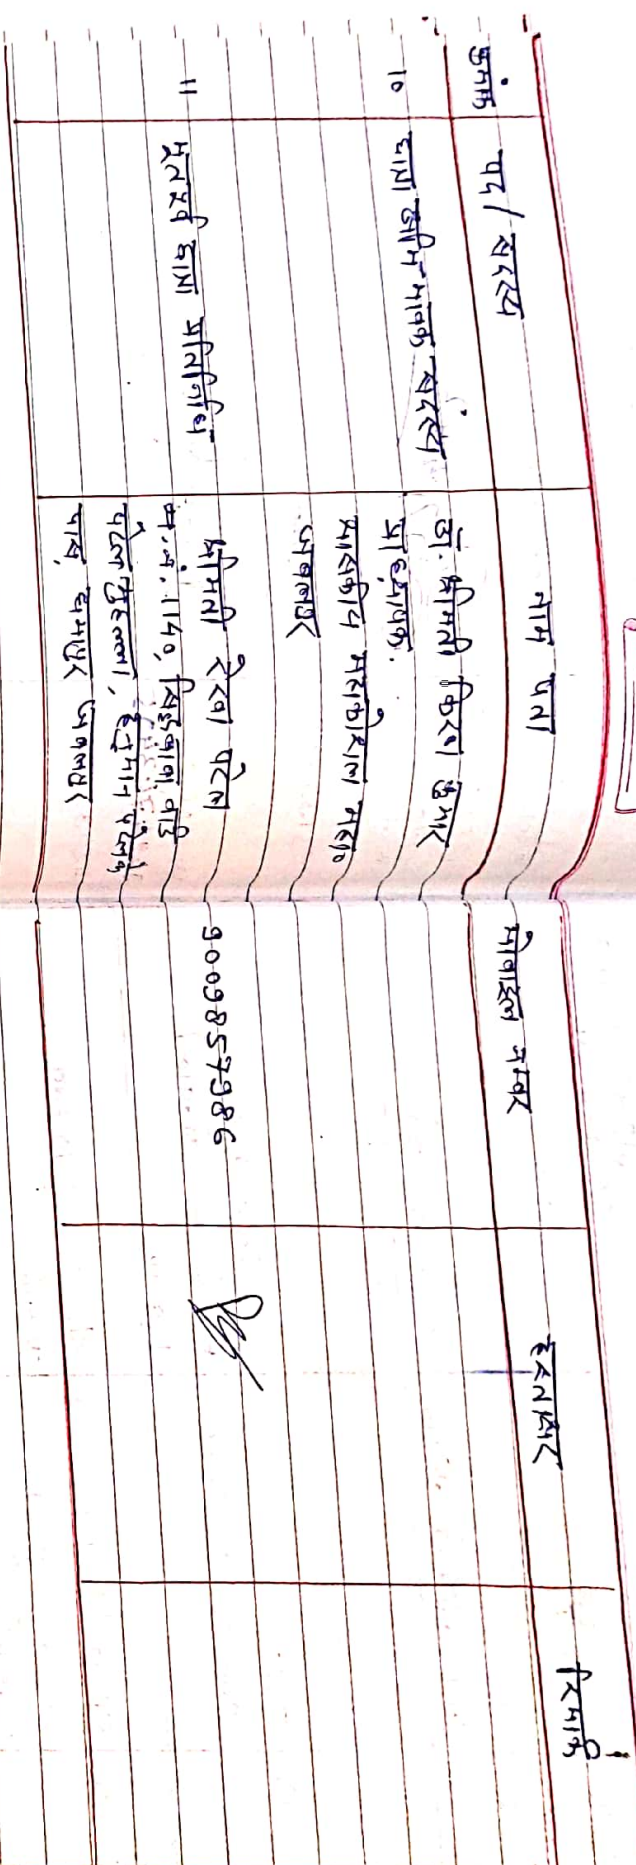 क्रमांक पद / सदस्य नाम पता मोबाइल नम्बर हस्ताक्षर रिमार्क
10 छात्रा अभिभावक सदस्य डॉ. श्रीमती किरण कुमार
प्राध्यापक.
शासकीय महाकोशल महा०
जबलपुर
11 भूतपूर्व छात्रा प्रतिनिधि श्रीमती रेखा पटेल 9009857986
म.नं. 1140, सिद्धबाबा वार्ड
पटेल मुहल्ला, हनुमान
पास, घमापुर जबलपुर